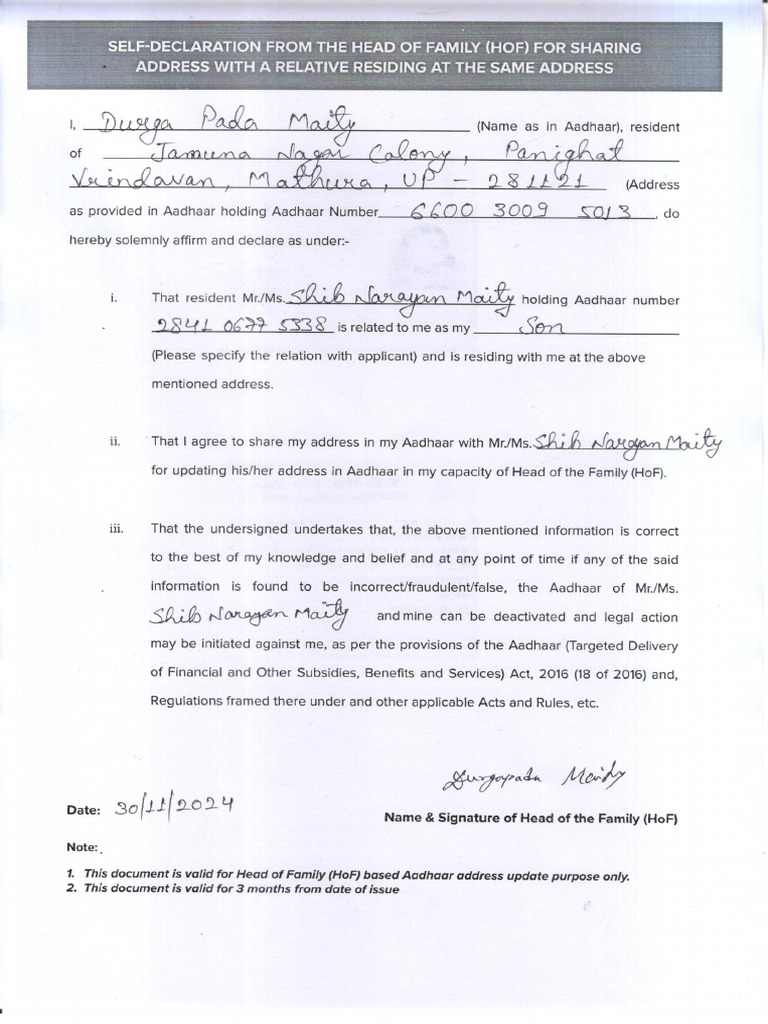 SELF-DECLARATION FROM THE HEAD OF FAMILY (HOF) FOR SHARING
ADDRESS WITH A RELATIVE RESIDING AT THE SAME ADDRESS
I, Durga Pada Maity (Name as in Aadhaar), resident
of Jamuna Nagar Colony, Panighat
Vrindavan, Mathura, UP - 281121 (Address
as provided in Aadhaar holding Aadhaar Number 6600 3009 5013, do
hereby solemnly affirm and declare as under:-
i. That resident Mr./Ms. Shib Narayan Maity holding Aadhaar number
2841 0677 5338 is related to me as my Son
(Please specify the relation with applicant) and is residing with me at the above
mentioned address.
ii. That I agree to share my address in my Aadhaar with Mr./Ms. Shib Narayan Maity
for updating his/her address in Aadhaar in my capacity of Head of the Family (HoF).
iii. That the undersigned undertakes that, the above mentioned information is correct
to the best of my knowledge and belief and at any point of time if any of the said
information is found to be incorrect/fraudulent/false, the Aadhaar of Mr./Ms.
Shib Narayan Maity and mine can be deactivated and legal action
may be initiated against me, as per the provisions of the Aadhaar (Targeted Delivery
of Financial and Other Subsidies, Benefits and Services) Act, 2016 (18 of 2016) and,
Regulations framed there under and other applicable Acts and Rules, etc.
Durgapada Maity
Date: 30/11/2024
Name & Signature of Head of the Family (HoF)
Note:
1. This document is valid for Head of Family (HoF) based Aadhaar address update purpose only.
2. This document is valid for 3 months from date of issue